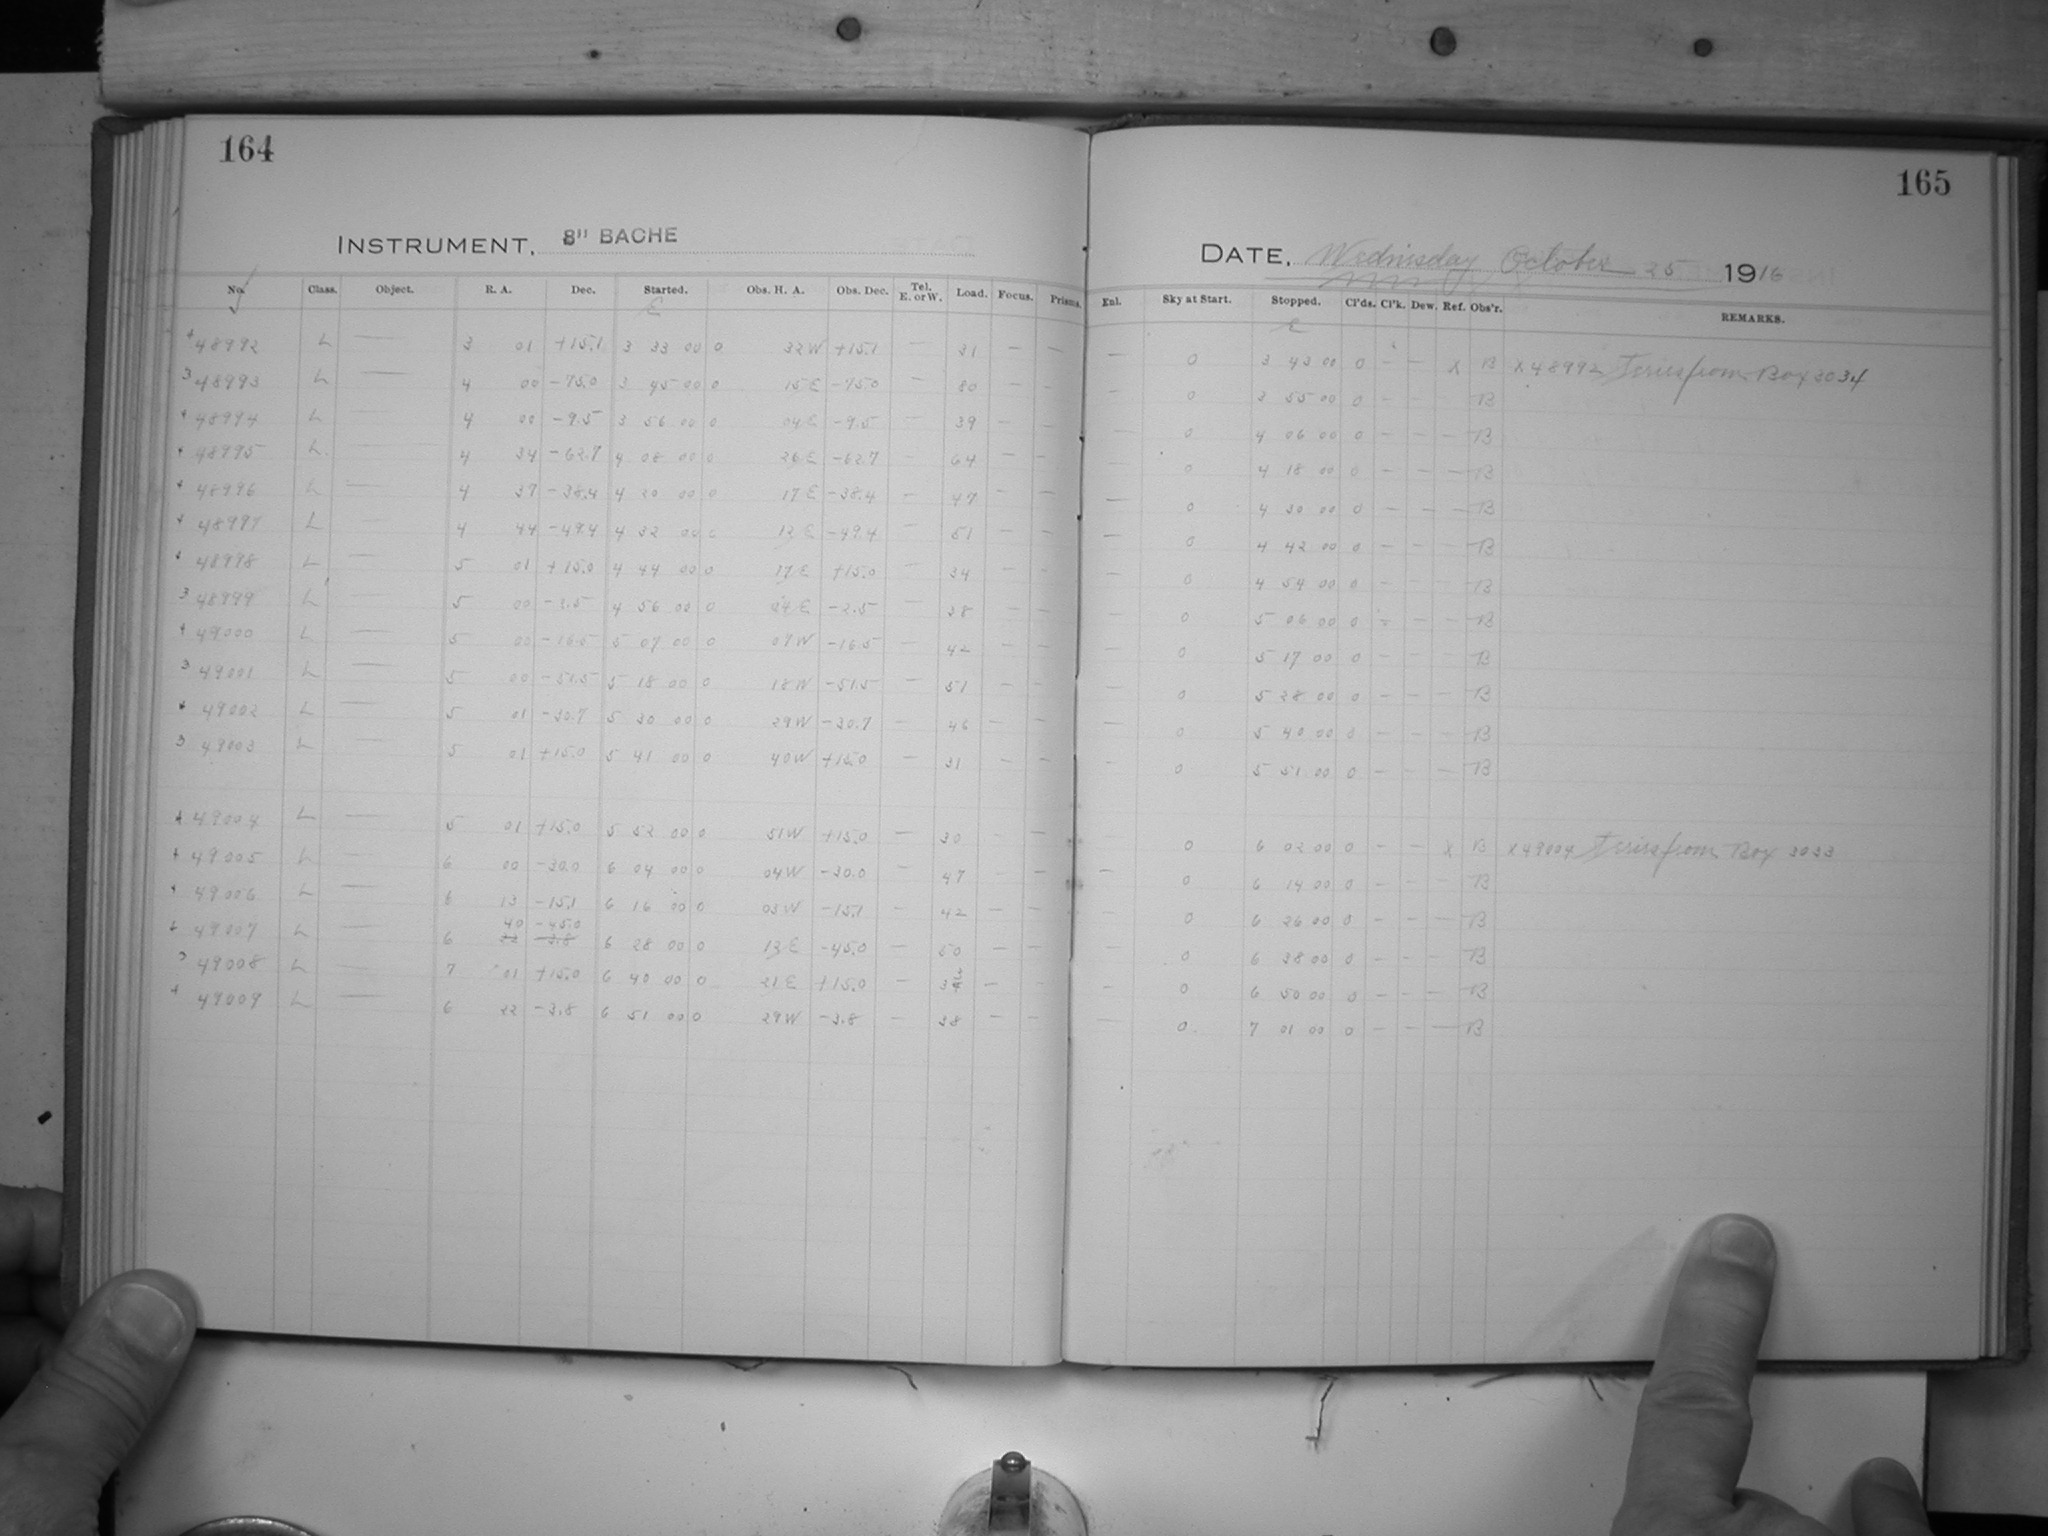 164
165
INSTRUMENT, 8" BACHE
DATE, Wednesday October 25 1916
No. Class. Object. R. A. Dec. Started. Obs. H. A. Obs. Dec. Tel. E. or W. Load. Focus. Prisms. Enl. Sky at Start. Stopped. Cl'ds. Cl'k. Dew. Ref. Obs'r. REMARKS.
E
4 48992 L — 3 01 +15.1 3 33 00 0 32W +15.1 — 31 — — — 0 3 43 00 0 — — X B X 48992 from Box 3034
3 48993 L — 4 00 -75.0 3 45 00 0 15E -75.0 — 80 — — — 0 3 55 00 0 — — — B
4 48994 L — 4 00 -9.5 3 56 00 0 04E -9.5 — 39 — — — 0 4 06 00 0 — — — B
4 48995 L — 4 34 -62.7 4 08 00 0 26E -62.7 — 64 — — — 0 4 18 00 0 — — — B
4 48996 L — 4 37 -38.4 4 20 00 0 17E -38.4 — 47 — — — 0 4 30 00 0 — — — B
4 48997 L — 4 44 -49.4 4 32 00 0 12E -49.4 — 51 — — — 0 4 42 00 0 — — — B
4 48998 L — 5 01 +15.0 4 44 00 0 17E +15.0 — 34 — — — 0 4 54 00 0 — — — B
3 48999 L — 5 00 -2.5 4 56 00 0 04E -2.5 — 38 — — — 0 5 06 00 0 — — — B
4 49000 L — 5 00 -16.5 5 07 00 0 07W -16.5 — 42 — — — 0 5 17 00 0 — — — B
3 49001 L — 5 00 -51.5 5 18 00 0 18W -51.5 — 51 — — — 0 5 28 00 0 — — — B
4 49002 L — 5 01 -30.7 5 30 00 0 29W -30.7 — 46 — — — 0 5 40 00 0 — — — B
3 49003 L — 5 01 +15.0 5 41 00 0 40W +15.0 — 31 — — — 0 5 51 00 0 — — — B
4 49004 L — 5 01 +15.0 5 52 00 0 51W +15.0 — 30 0 6 02 00 0 — — X B X 49004 from Box 3033
4 49005 L — 6 00 -30.0 6 04 00 0 04W -30.0 — 47 — — — 0 6 14 00 0 — — — B
4 49006 L — 6 13 -15.1 6 16 00 0 03W -15.1 — 42 — — — 0 6 26 00 0 — — — B
40 -45.0
49007 L — 6 22 -3.8 6 28 00 0 12E -45.0 — 50 — — — 0 6 38 00 0 — — — B
3 49008 L — 7 01 +15.0 6 40 00 0 21E +15.0 — — — — — 0 6 50 00 0 — — — B
4 49009 L — 6 22 -3.8 6 51 00 0 29W -3.8 — 38 — — — 0 7 01 00 0 — — — B